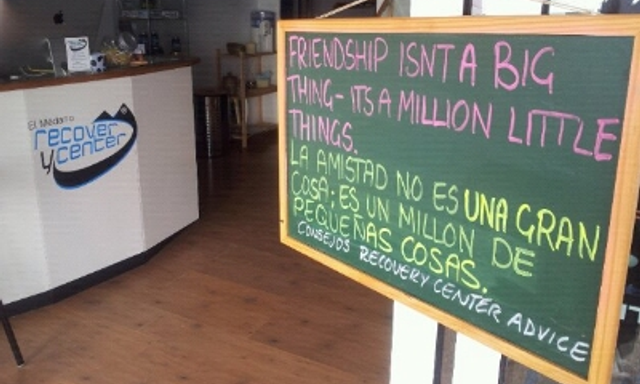 El Médano
recover
y center
FRIENDSHIP ISNT A BIG
THING - ITS A MILLION LITTLE
THINGS.
LA AMISTAD NO ES UNA GRAN
COSA; ES UN MILLON DE
PEQUEÑAS COSAS.
CONSEJOS RECOVERY CENTER ADVICE